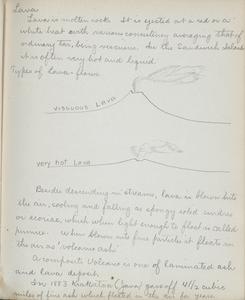 Lava
Lava is molten rock. It is ejected at a red or a
white heat with various consistency averaging that of
ordinary tar, being viscuous. In the Sandwich Islands
it is often very hot and liquid.
Types of lava-flows
viscuous Lava
very hot Lava
Beside descending in streams, lava is blown into
the air, cooling and falling as spongy solid cinders
or scoriae, which when light enough to float is called
pumice. When blown into fine particles it floats in
the air as "volcanic ash"
A composite Volcano is one of laminated ash
and lava deposit.
In 1883 Krakatoa (Java) gave off 4 1/2 cubic
miles of fine ash which floated in the air for years